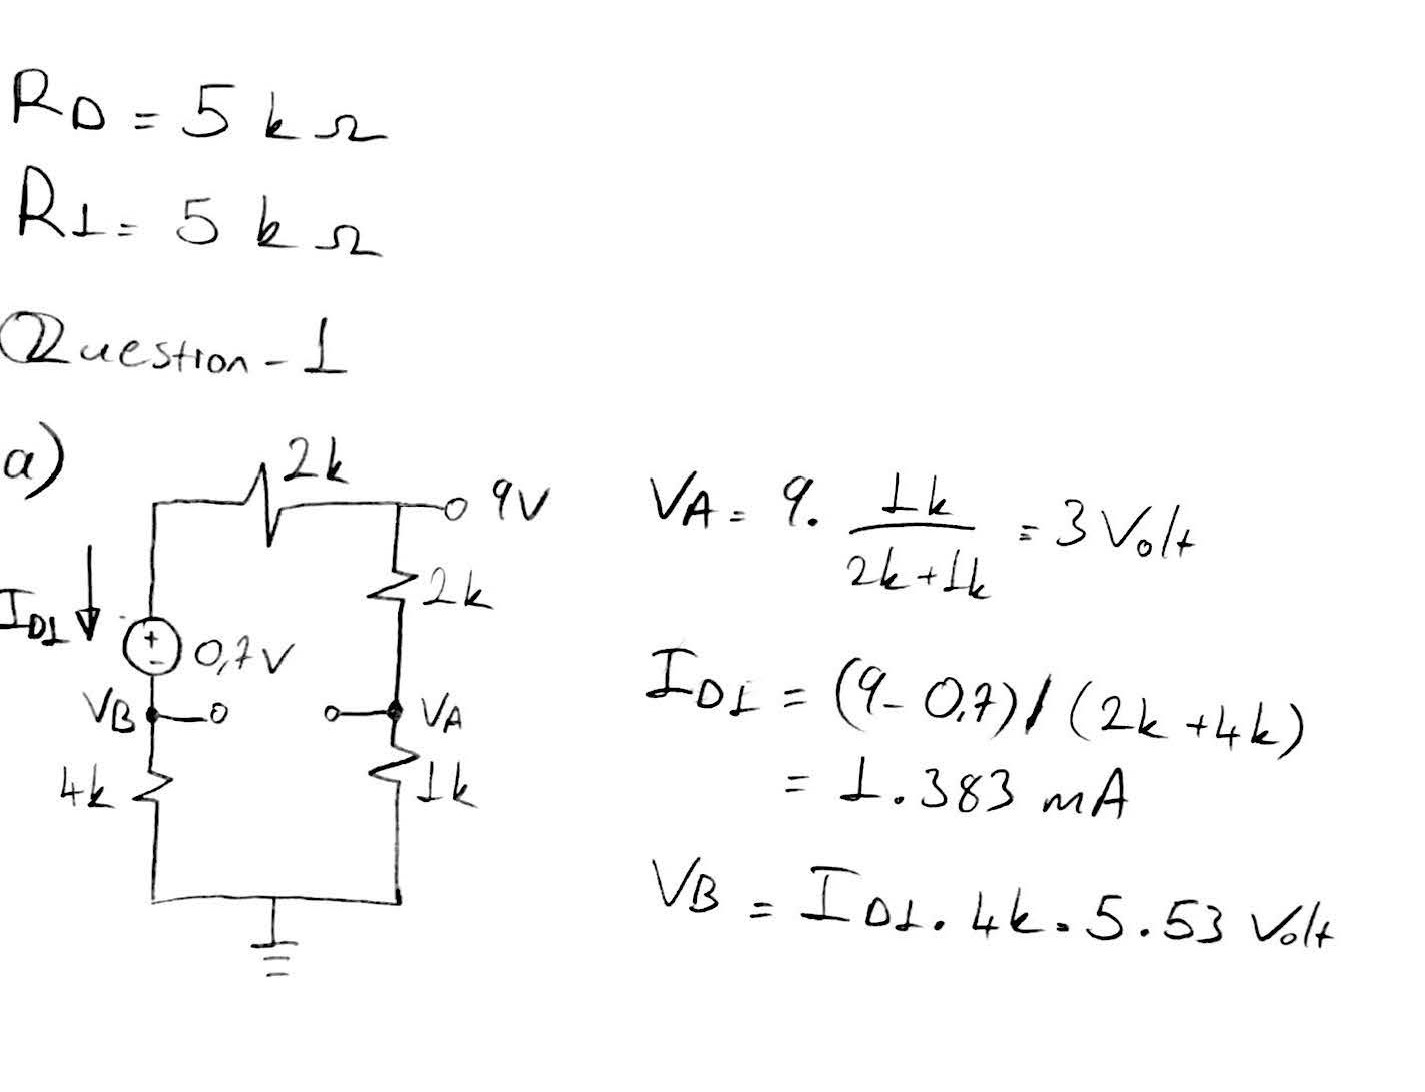 RD = 5 k Ω
R1 = 5 k Ω
Question - 1
a)
2k
9V
2k
ID1
0,7V
+
-
VB
VA
4k
1k
VA = 9. 1k / 2k+1k = 3 Volt
ID1 = (9-0,7)/(2k+4k)
= 1.383 mA
VB = ID1.4k = 5.53 Volt